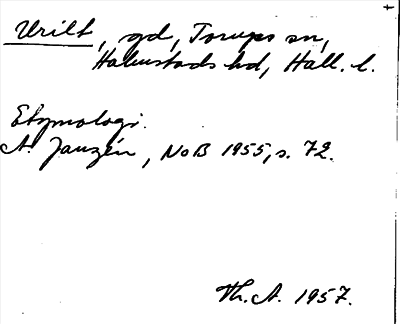 Urilt, gd, Torups sn,
Halmstads hd, Hall. l.
Etymologi.
A. Janzén, NoB 1955, s. 72.
Th. A. 1957.